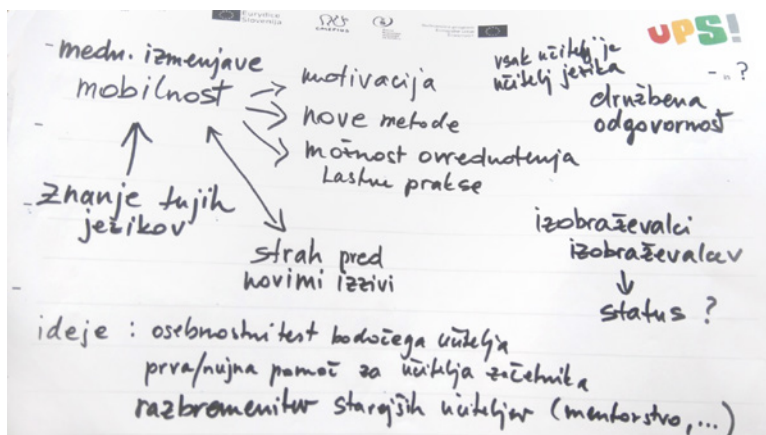 Eurydice
Slovenija
CMEPIUS
UPS!
- medn. izmenjave
mobilnost
motivacija
nove metode
možnost ovrednotenja
lastne prakse
vsak učitelj je
učitelj jezika
- ?
družbena
odgovornost
- znanje tujih
jezikov
strah pred
novimi izzivi
izobraževalci
izobraževalcev
status ?
ideje : osebnostni test bodočega učitelja
prva/nujna pomoč za učitelja začetnika
razbremenitev starejših učiteljev (mentorstvo, ...)